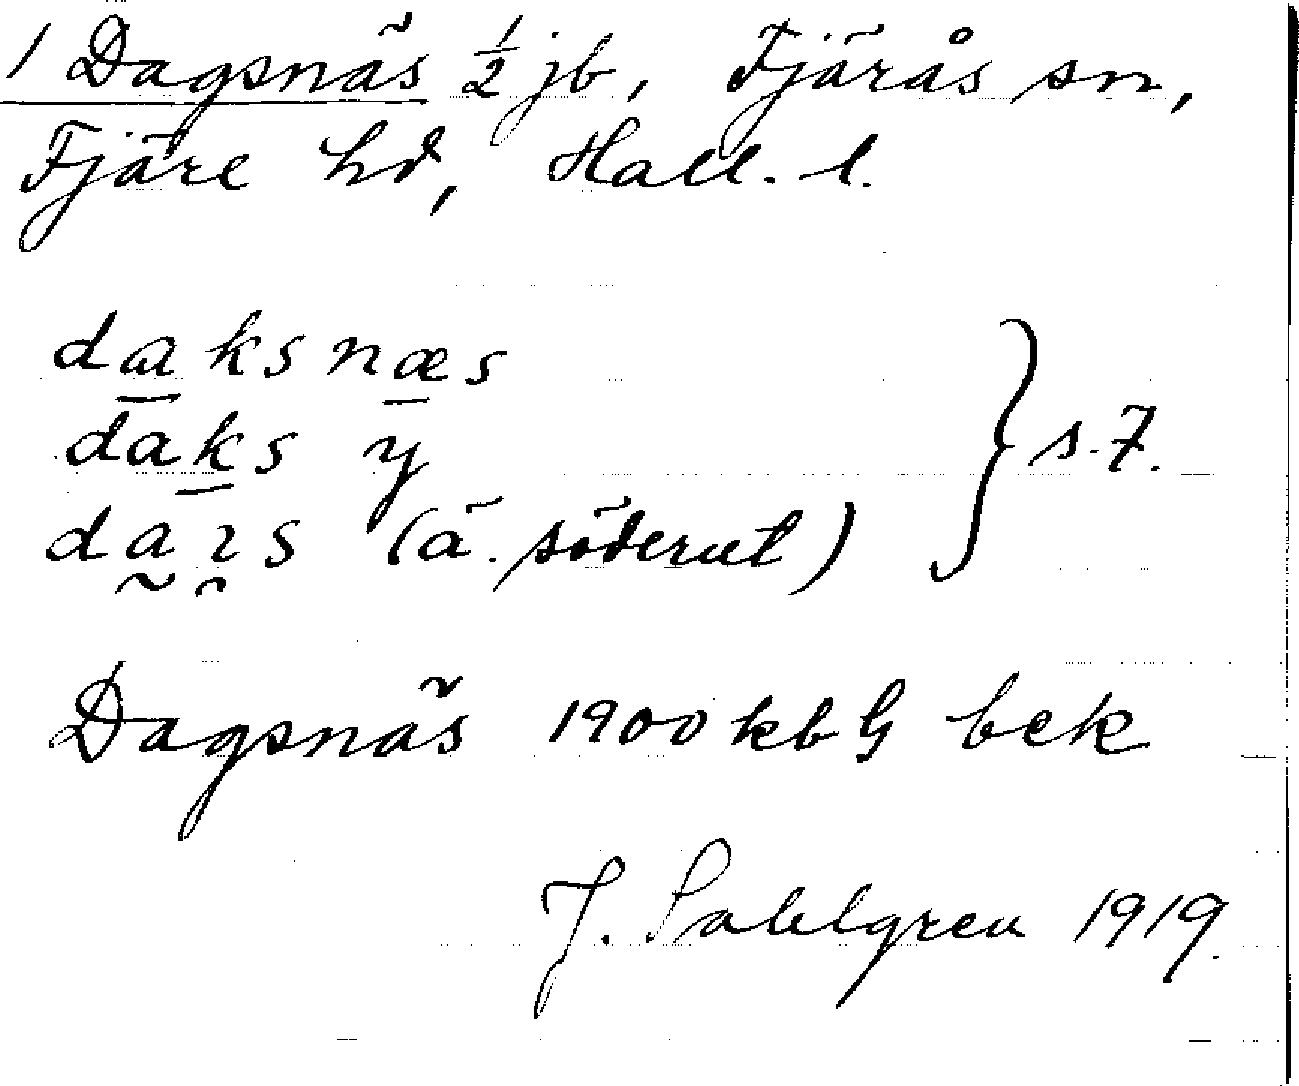 1 Dagsnäs ½ jb, Fjärås sn,
Fjäre hd, Hall. l.
daksnæs
daks y } s. 7.
daıs (ä. söderut)
Dagsnäs 1900 kb G bek
J. Sahlgren 1919.